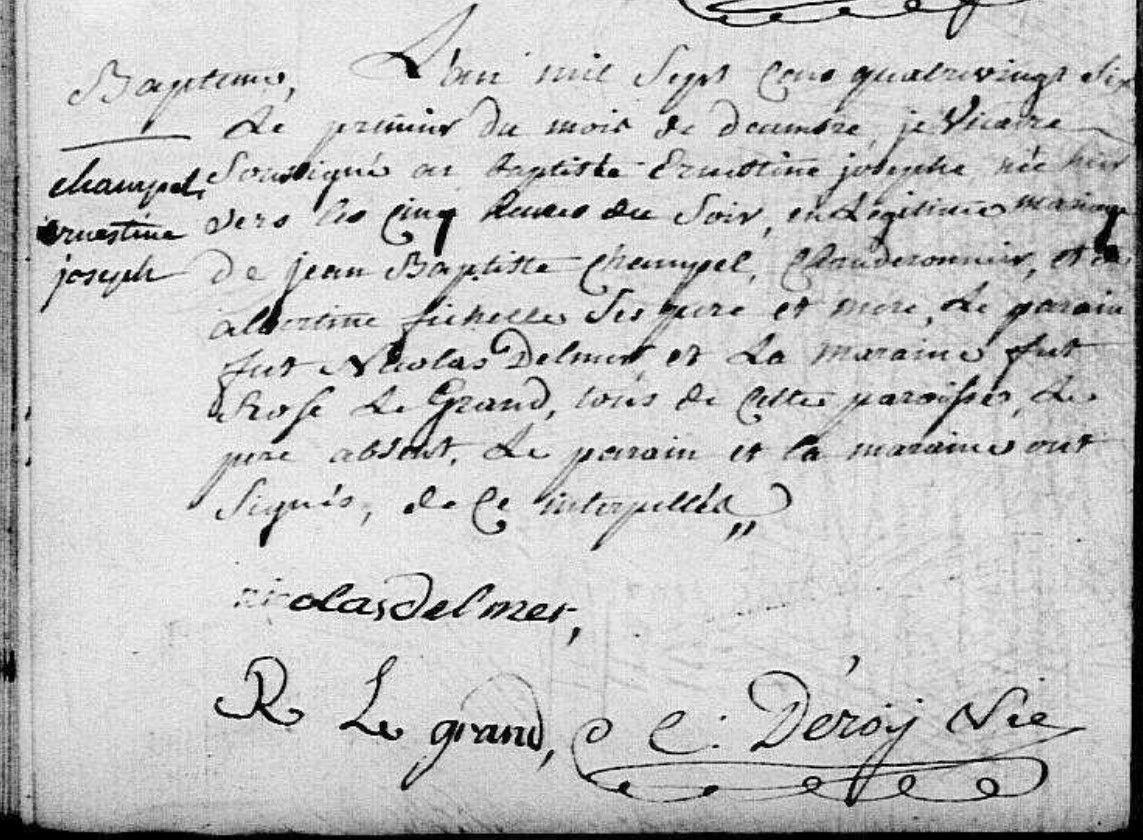 Baptême,
champel,
ernestine
joseph
L'an mil Sept Cens quatrevingt Six
Le premier du mois de decembre, je Vicaire
Soussigné ai baptisée Ernestine josephe née hier
vers les Cinq heures du Soir, en Légitime mariage
de jean Baptiste Champel, Chauderonnier, et de
albertine fichelle Ses pere et mere, Le parain
fut Nicolas Delmer, et La maraine fut
Rose Le Grand, tous de Cette paroisse, Le
pere absent, Le parain et la maraine ont
Signés, de Ce interpellés,,
nicolas delmer,
R Le grand,
C. Déroÿ Vic